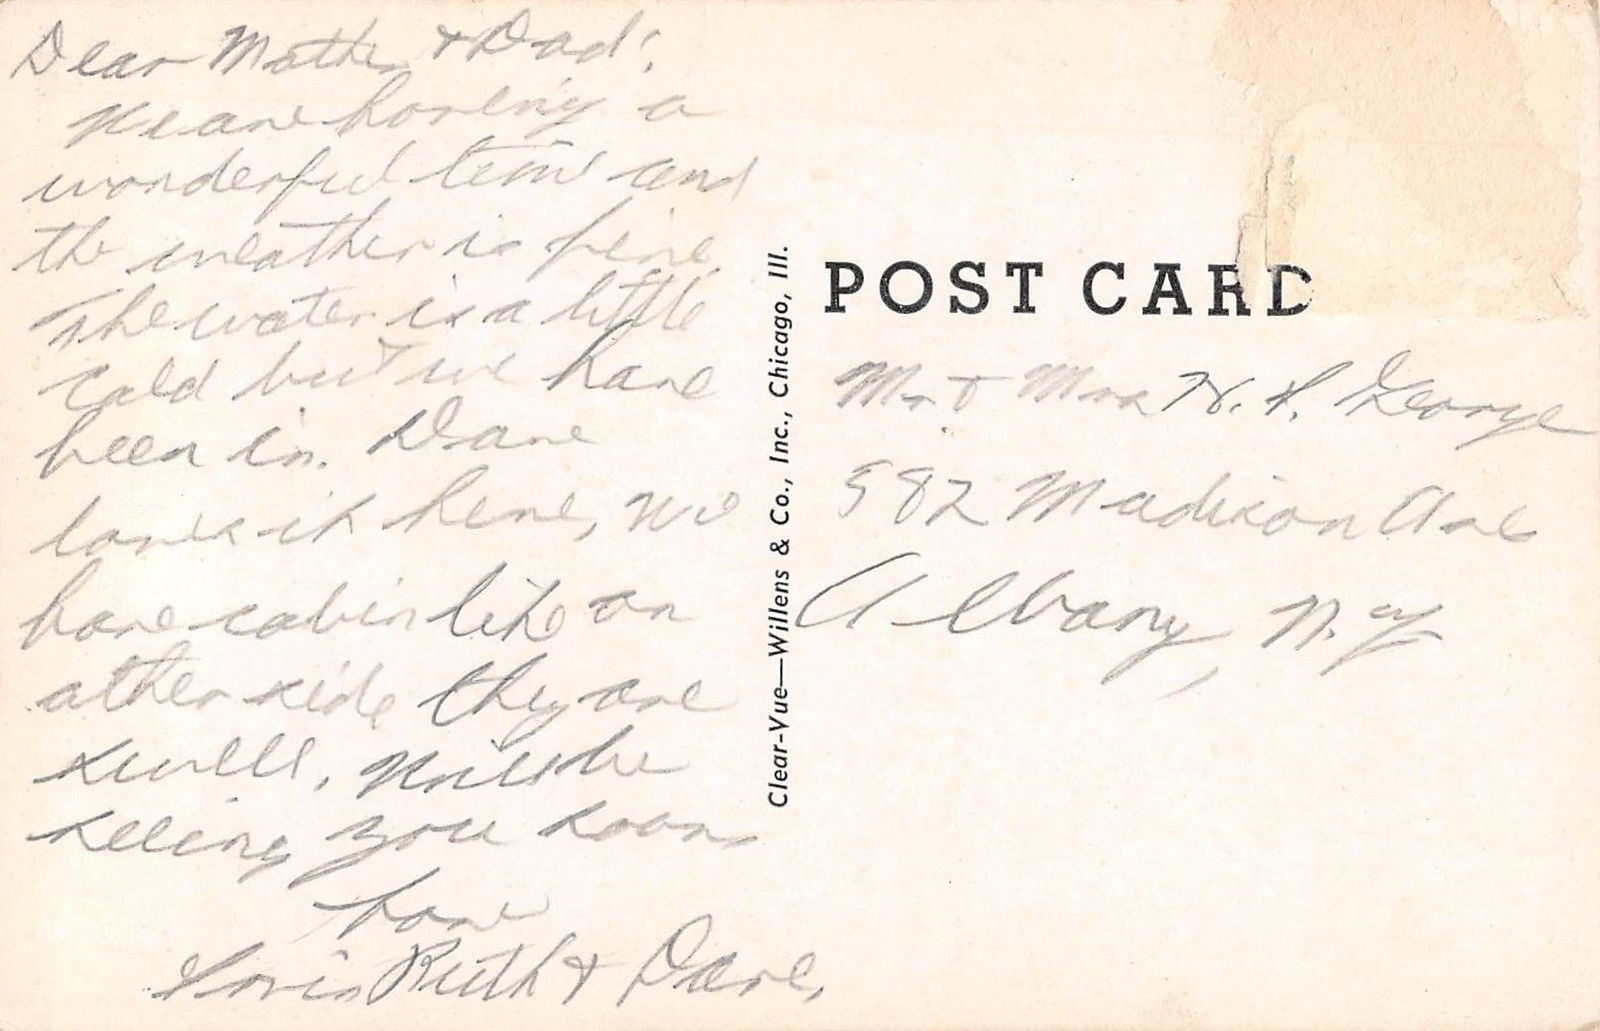 Dear Mother & Dad:
We are having a
wonderful time and
the weather is fine.
The water is a little
cold but we have
been in. Dave
loves it here, We
have cabin like on
other side they are
swell. Will be
seeing you soon
love
Ruth & Dave.
POST CARD
Mr & Mrs H. P. George
982 Madison Ave
Albany, N.Y
Clear-Vue—Willens & Co., Inc., Chicago, Ill.